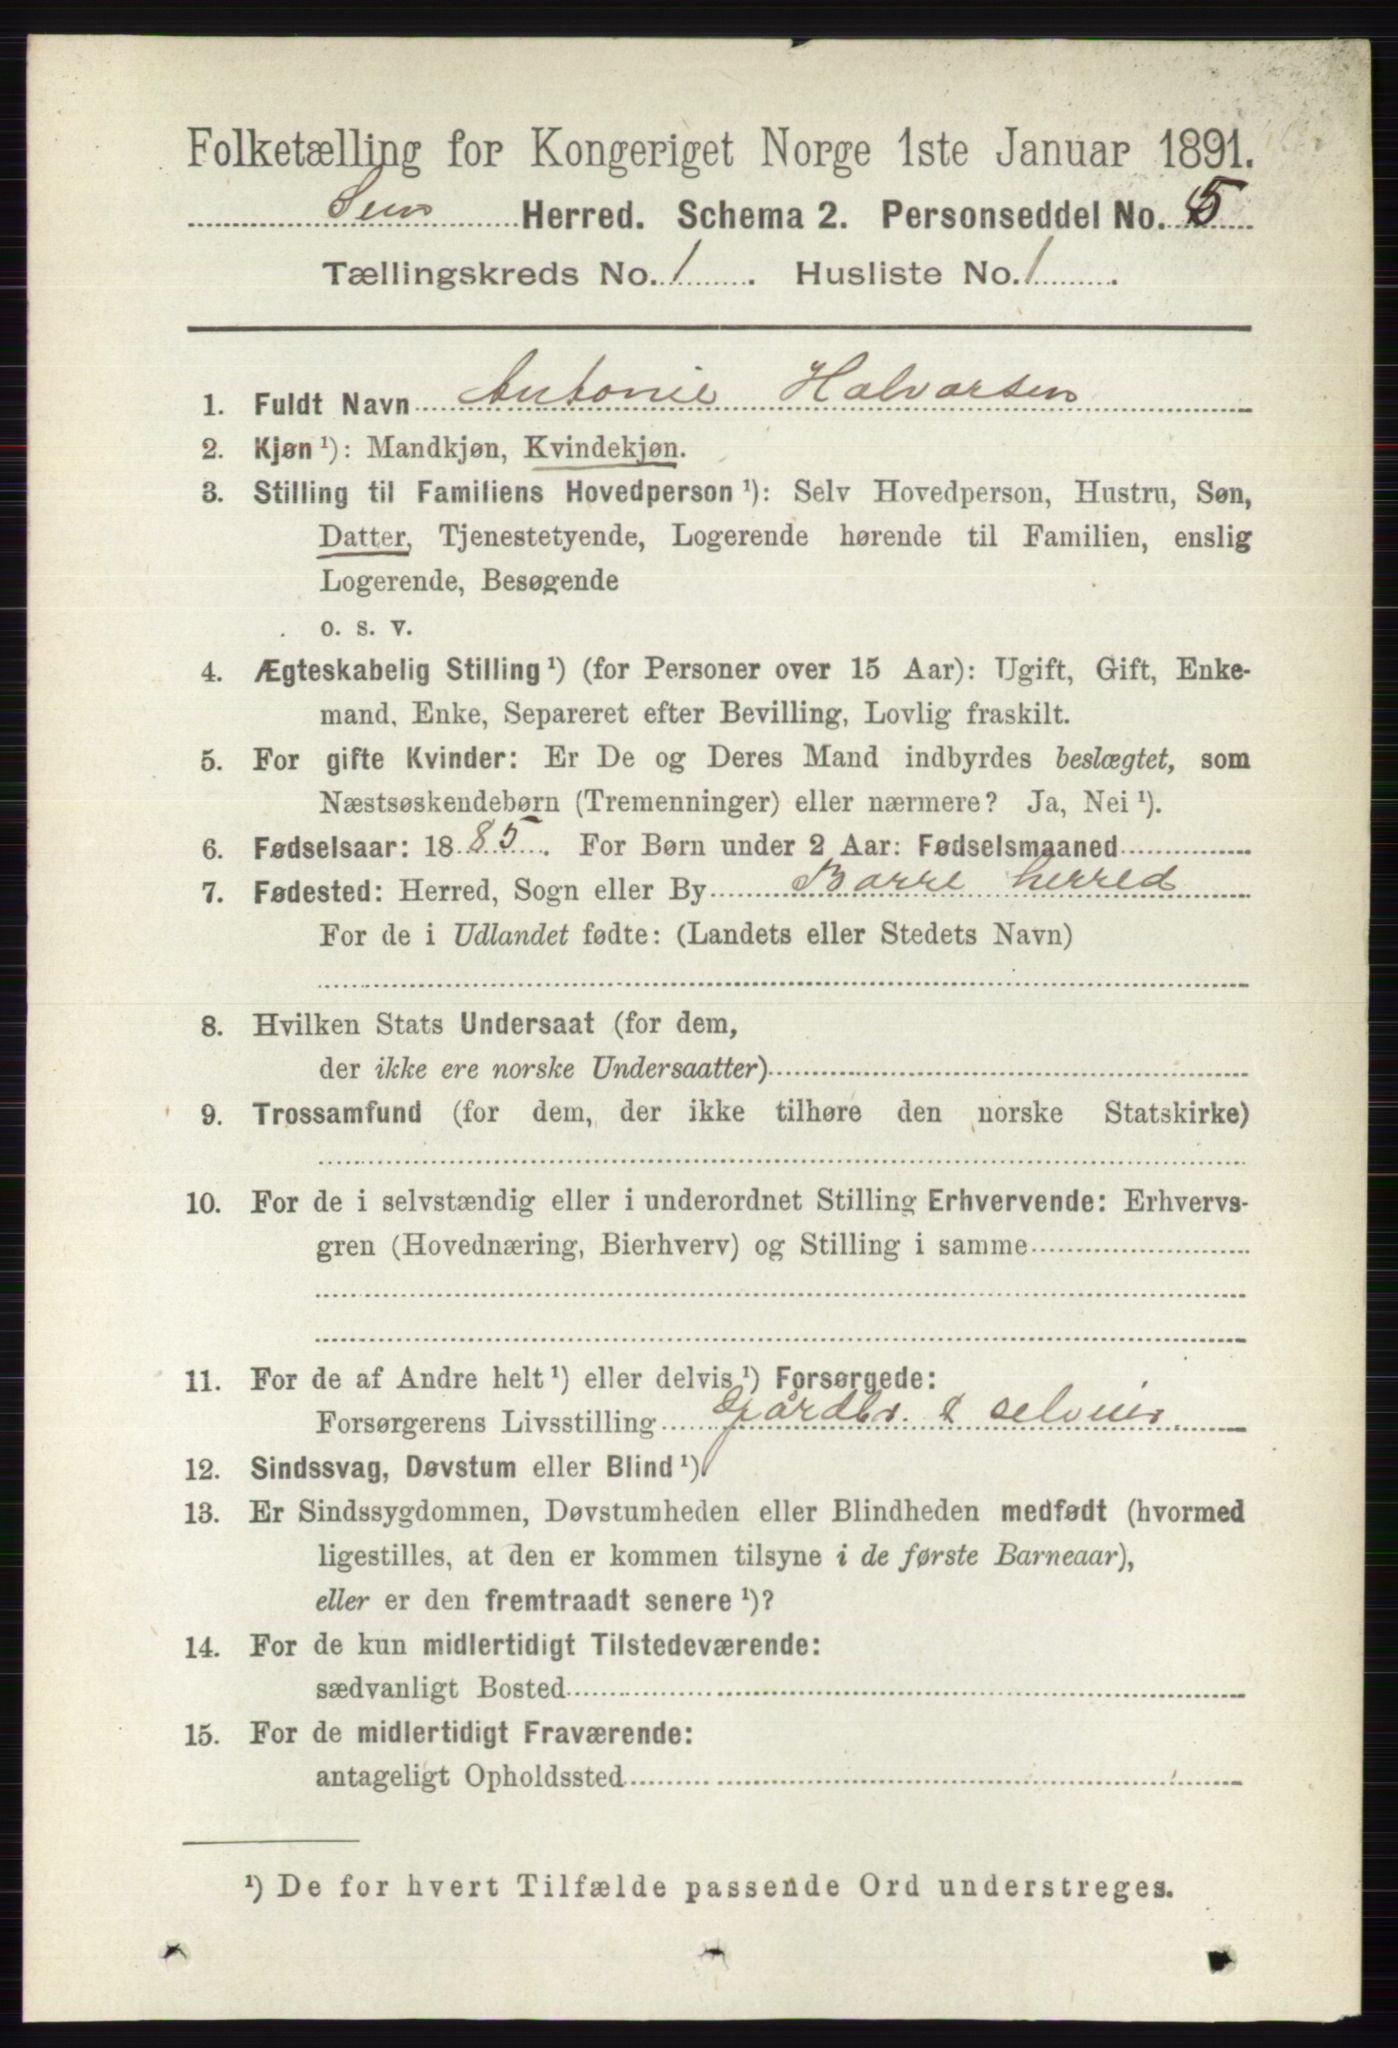 Folketælling for Kongeriget Norge 1ste Januar 1891.
Sem Herred. Schema 2. Personseddel No. 5
Tællingskreds No. 1. Husliste No. 1.
1. Fuldt Navn Antonie Halvorsen
2. Kjøn ¹): Mandkjøn, Kvindekjøn.
3. Stilling til Familiens Hovedperson ¹): Selv Hovedperson, Hustru, Søn,
Datter, Tjenestetyende, Logerende hørende til Familien, enslig
Logerende, Besøgende
o. s. v.
4. Ægteskabelig Stilling ¹) (for Personer over 15 Aar): Ugift, Gift, Enke-
mand, Enke, Separeret efter Bevilling, Lovlig fraskilt.
5. For gifte Kvinder: Er De og Deres Mand indbyrdes beslægtet, som
Næstsøskendebørn (Tremenninger) eller nærmere? Ja, Nei ¹).
6. Fødselsaar: 1885. For Børn under 2 Aar: Fødselsmaaned
7. Fødested: Herred, Sogn eller By Borre herred
For de i Udlandet fødte: (Landets eller Stedets Navn)
8. Hvilken Stats Undersaat (for dem,
der ikke ere norske Undersaatter)
9. Trossamfund (for dem, der ikke tilhøre den norske Statskirke)
10. For de i selvstændig eller i underordnet Stilling Erhvervende: Erhvervs-
gren (Hovednæring, Bierhverv) og Stilling i samme
11. For de af Andre helt ¹) eller delvis ¹) Forsørgede:
Forsørgerens Livsstilling Gårdbr. & selveier.
12. Sindssvag, Døvstum eller Blind ¹).
13. Er Sindssygdommen, Døvstumheden eller Blindheden medfødt (hvormed
ligestilles, at den er kommen tilsyne i de første Barneaar),
eller er den fremtraadt senere ¹)?
14. For de kun midlertidigt Tilstedeværende:
sædvanligt Bosted
15. For de midlertidigt Fraværende:
antageligt Opholdssted
¹) De for hvert Tilfælde passende Ord understreges.